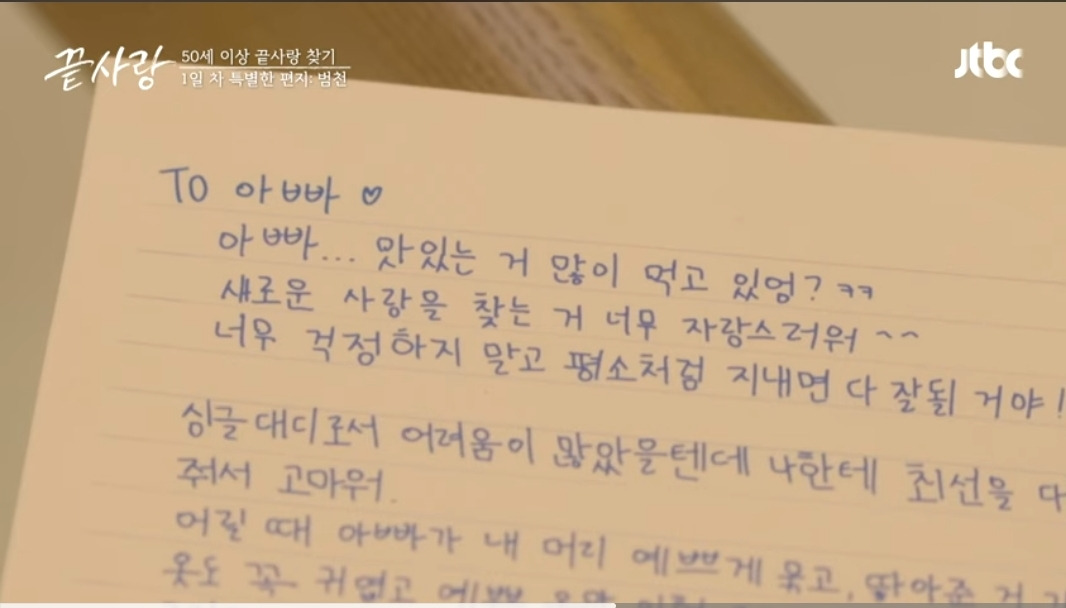 끝사랑
50세 이상 끝사랑 찾기
1일 차 특별한 편지: 범천
jtbc
TO 아빠 ♡
아빠... 맛있는 거 많이 먹고 있엉? ㅋㅋ
새로운 사랑을 찾는 거 너무 자랑스러워 ~~
너무 걱정하지 말고 평소처럼 지내면 다 잘될 거야!
싱글대디로서 어려움이 많았을텐데 나한테 최선을 다
줘서 고마워.
어릴 때 아빠가 내 머리 예쁘게 묶고, 땋아준 거
옷도 꼭 귀엽고 예쁜